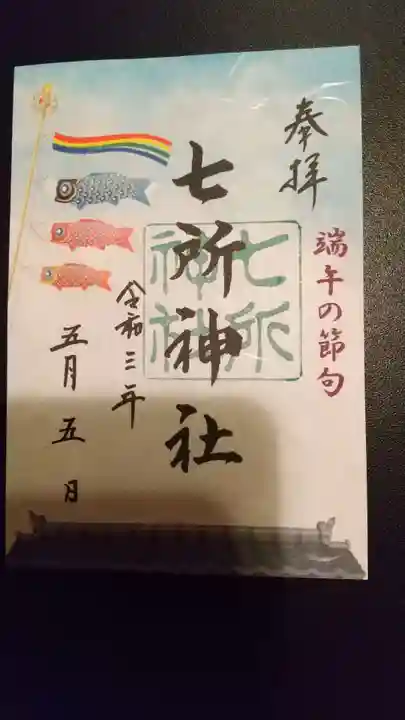 奉拝
端午の節句
七所神社
七所神社
令和三年
五月五日